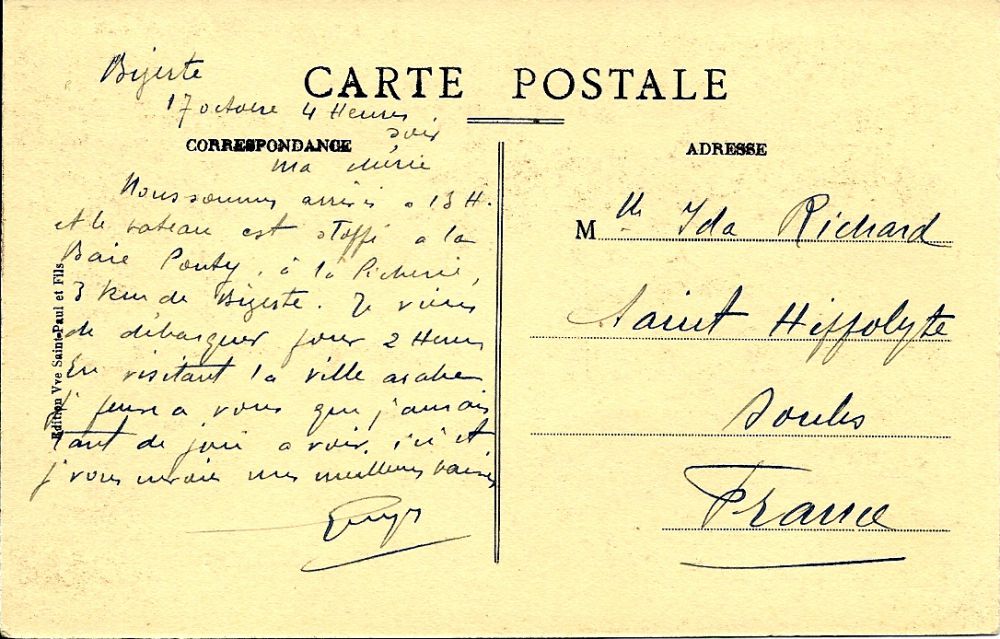 Bizerte
CARTE POSTALE
17 octobre 4 Heures
soir
CORRESPONDANCE
ma chérie
Nous sommes arrivés à 13 H.
et le bateau est stoppé a la
Baie Ponty, à la Pêcherie,
3 km de Bizerte. Je viens
de débarquer pour 2 Heures
En visitant la ville arabe
je pense a vous que j'aurais
tant de joie a voir ici et
je vous envoie mes meilleurs baisers
Edition Vve Saint-Paul et Fils
ADRESSE
Mlle Ida Richard
Saint Hippolyte
Doubs
France